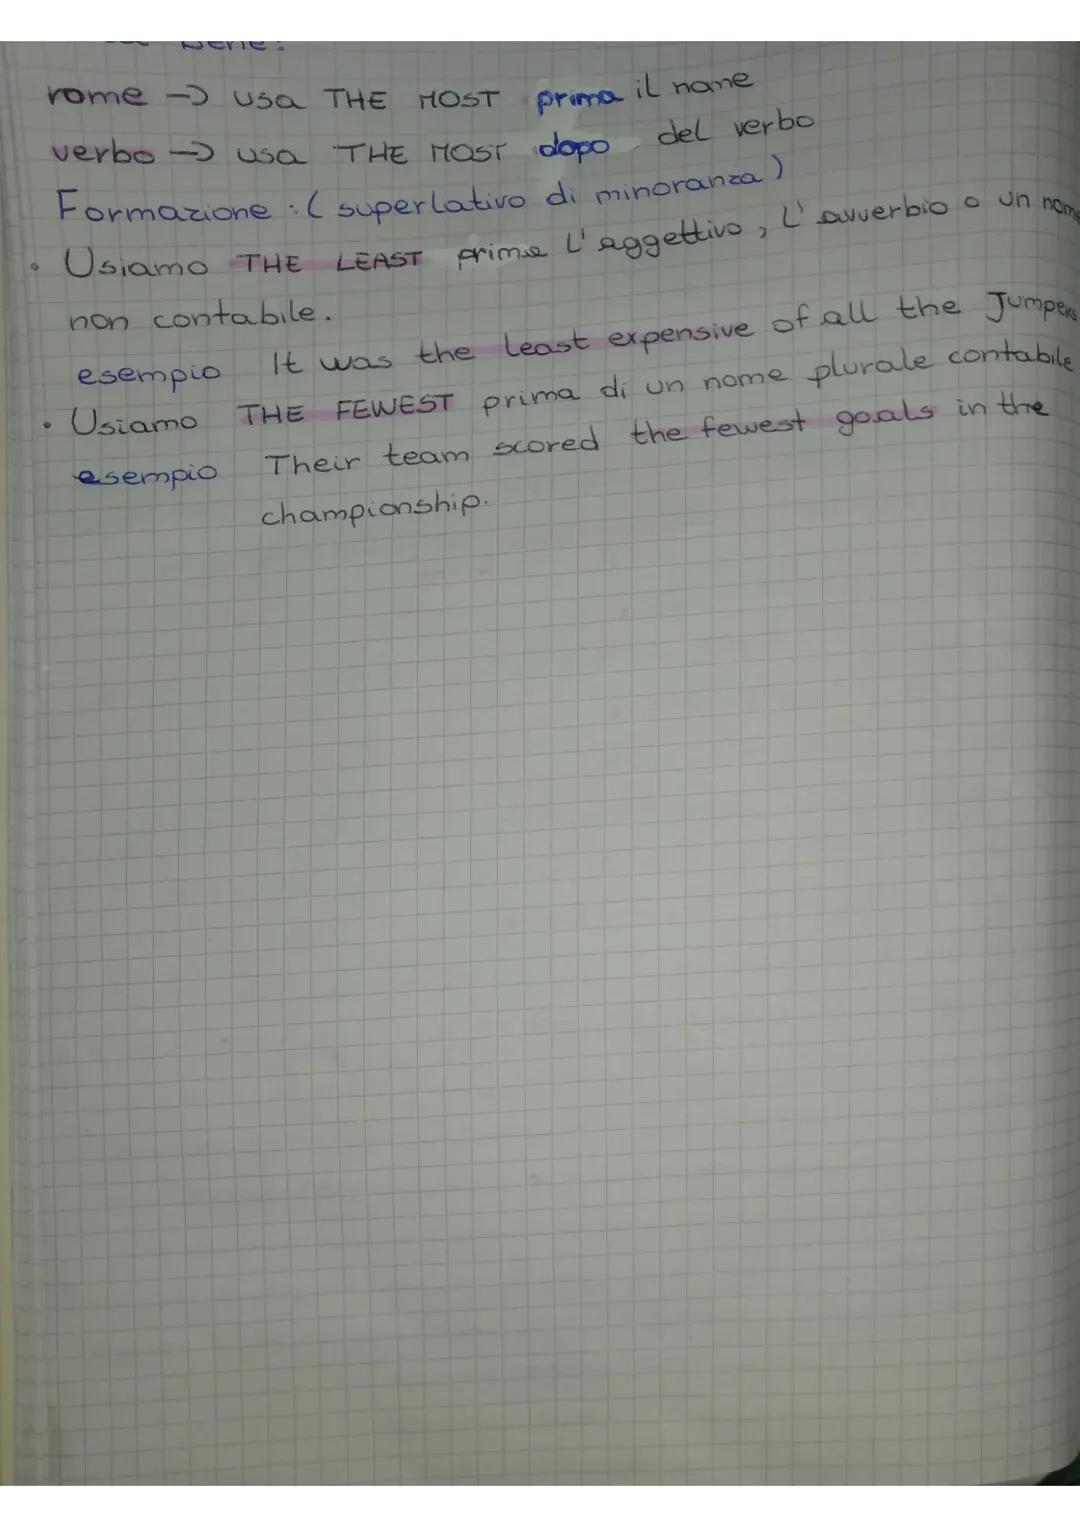 rome → usa THE MOST prima il nome
verbo → usa THE MOST dopo del verbo
Formazione : ( superlativo di minoranza )
• Usiamo THE LEAST prima l'aggettivo, l'avverbio o un nome
non contabile.
esempio It was the least expensive of all the Jumpers
• Usiamo THE FEWEST prima di un nome plurale contabile
esempio Their team scored the fewest goals in the
championship.